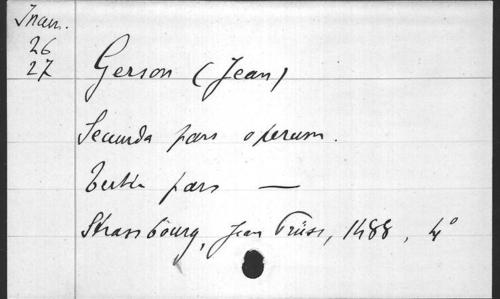 Incun.
26
27
Gerson (Jean)
Secunda pars operum.
Tertia pars —
Strassbourg, Jean Prüss, 1488, 4°